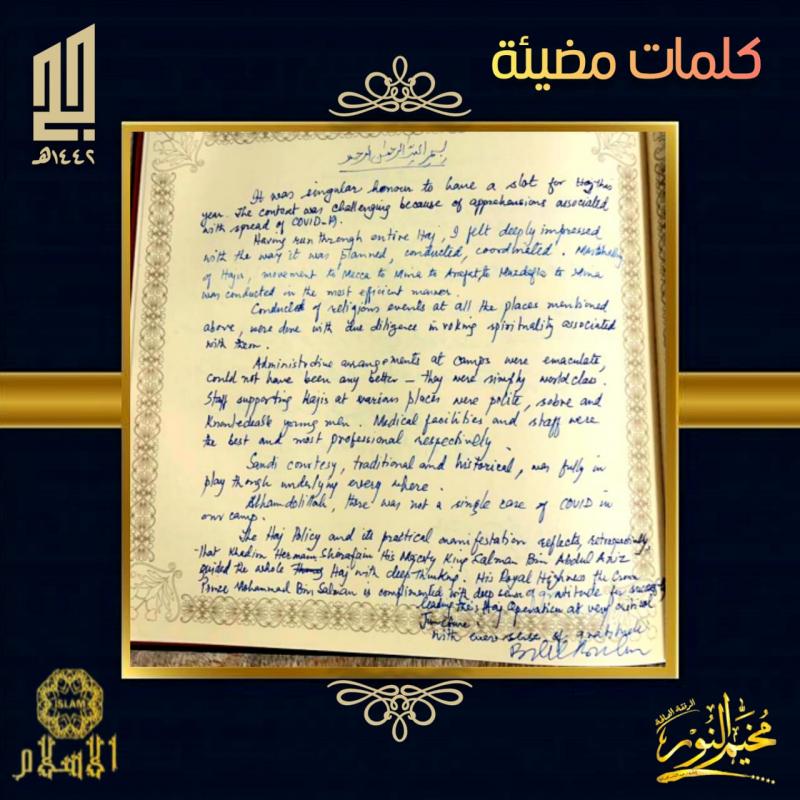 كلمات مضيئة
الحج
١٤٤٢هـ
بسم الله الرحمن الرحيم
It was singular honour to have a slot for Haj this
year. The context was challenging because of apprehensions associated
with spread of COVID-19.
Having run through entire Haj, I felt deeply impressed
with the way it was planned, conducted, coordinated.
of Hajis, movement to Mecca to Mina to Arafat, to Muzdalfa to Mina
was conducted in the most efficient manner.
Conduct of religious events at all the places mentioned
above, were done with due diligence invoking spirituality associated
with them.
Administrative arrangements at camps were emaculate,
could not have been any better — they were simply world class.
Staff supporting Hajis at various places were polite, sobre and
Knowledeable young men. Medical facilities and staff were
the best and most professional respectively.
Saudi courtesy, traditional and historical, was fully in
play though underlying every where.
Alhamdolillah, there was not a single case of COVID in
our camp.
The Haj Policy and its practical manifestation reflects,
that Khadim Hermain Sharafain His Majesty King Salman Bin Abdul Aziz
guided the whole Haj with deep thinking. His Royal Highness the Crown
Prince Mohammad Bin Salman is complimented with deep sense of gratitude for
leading this Haj Operation at very critical
Juncture.
with sense of gratitude
ISLAM
الاسلام
مخيم النور